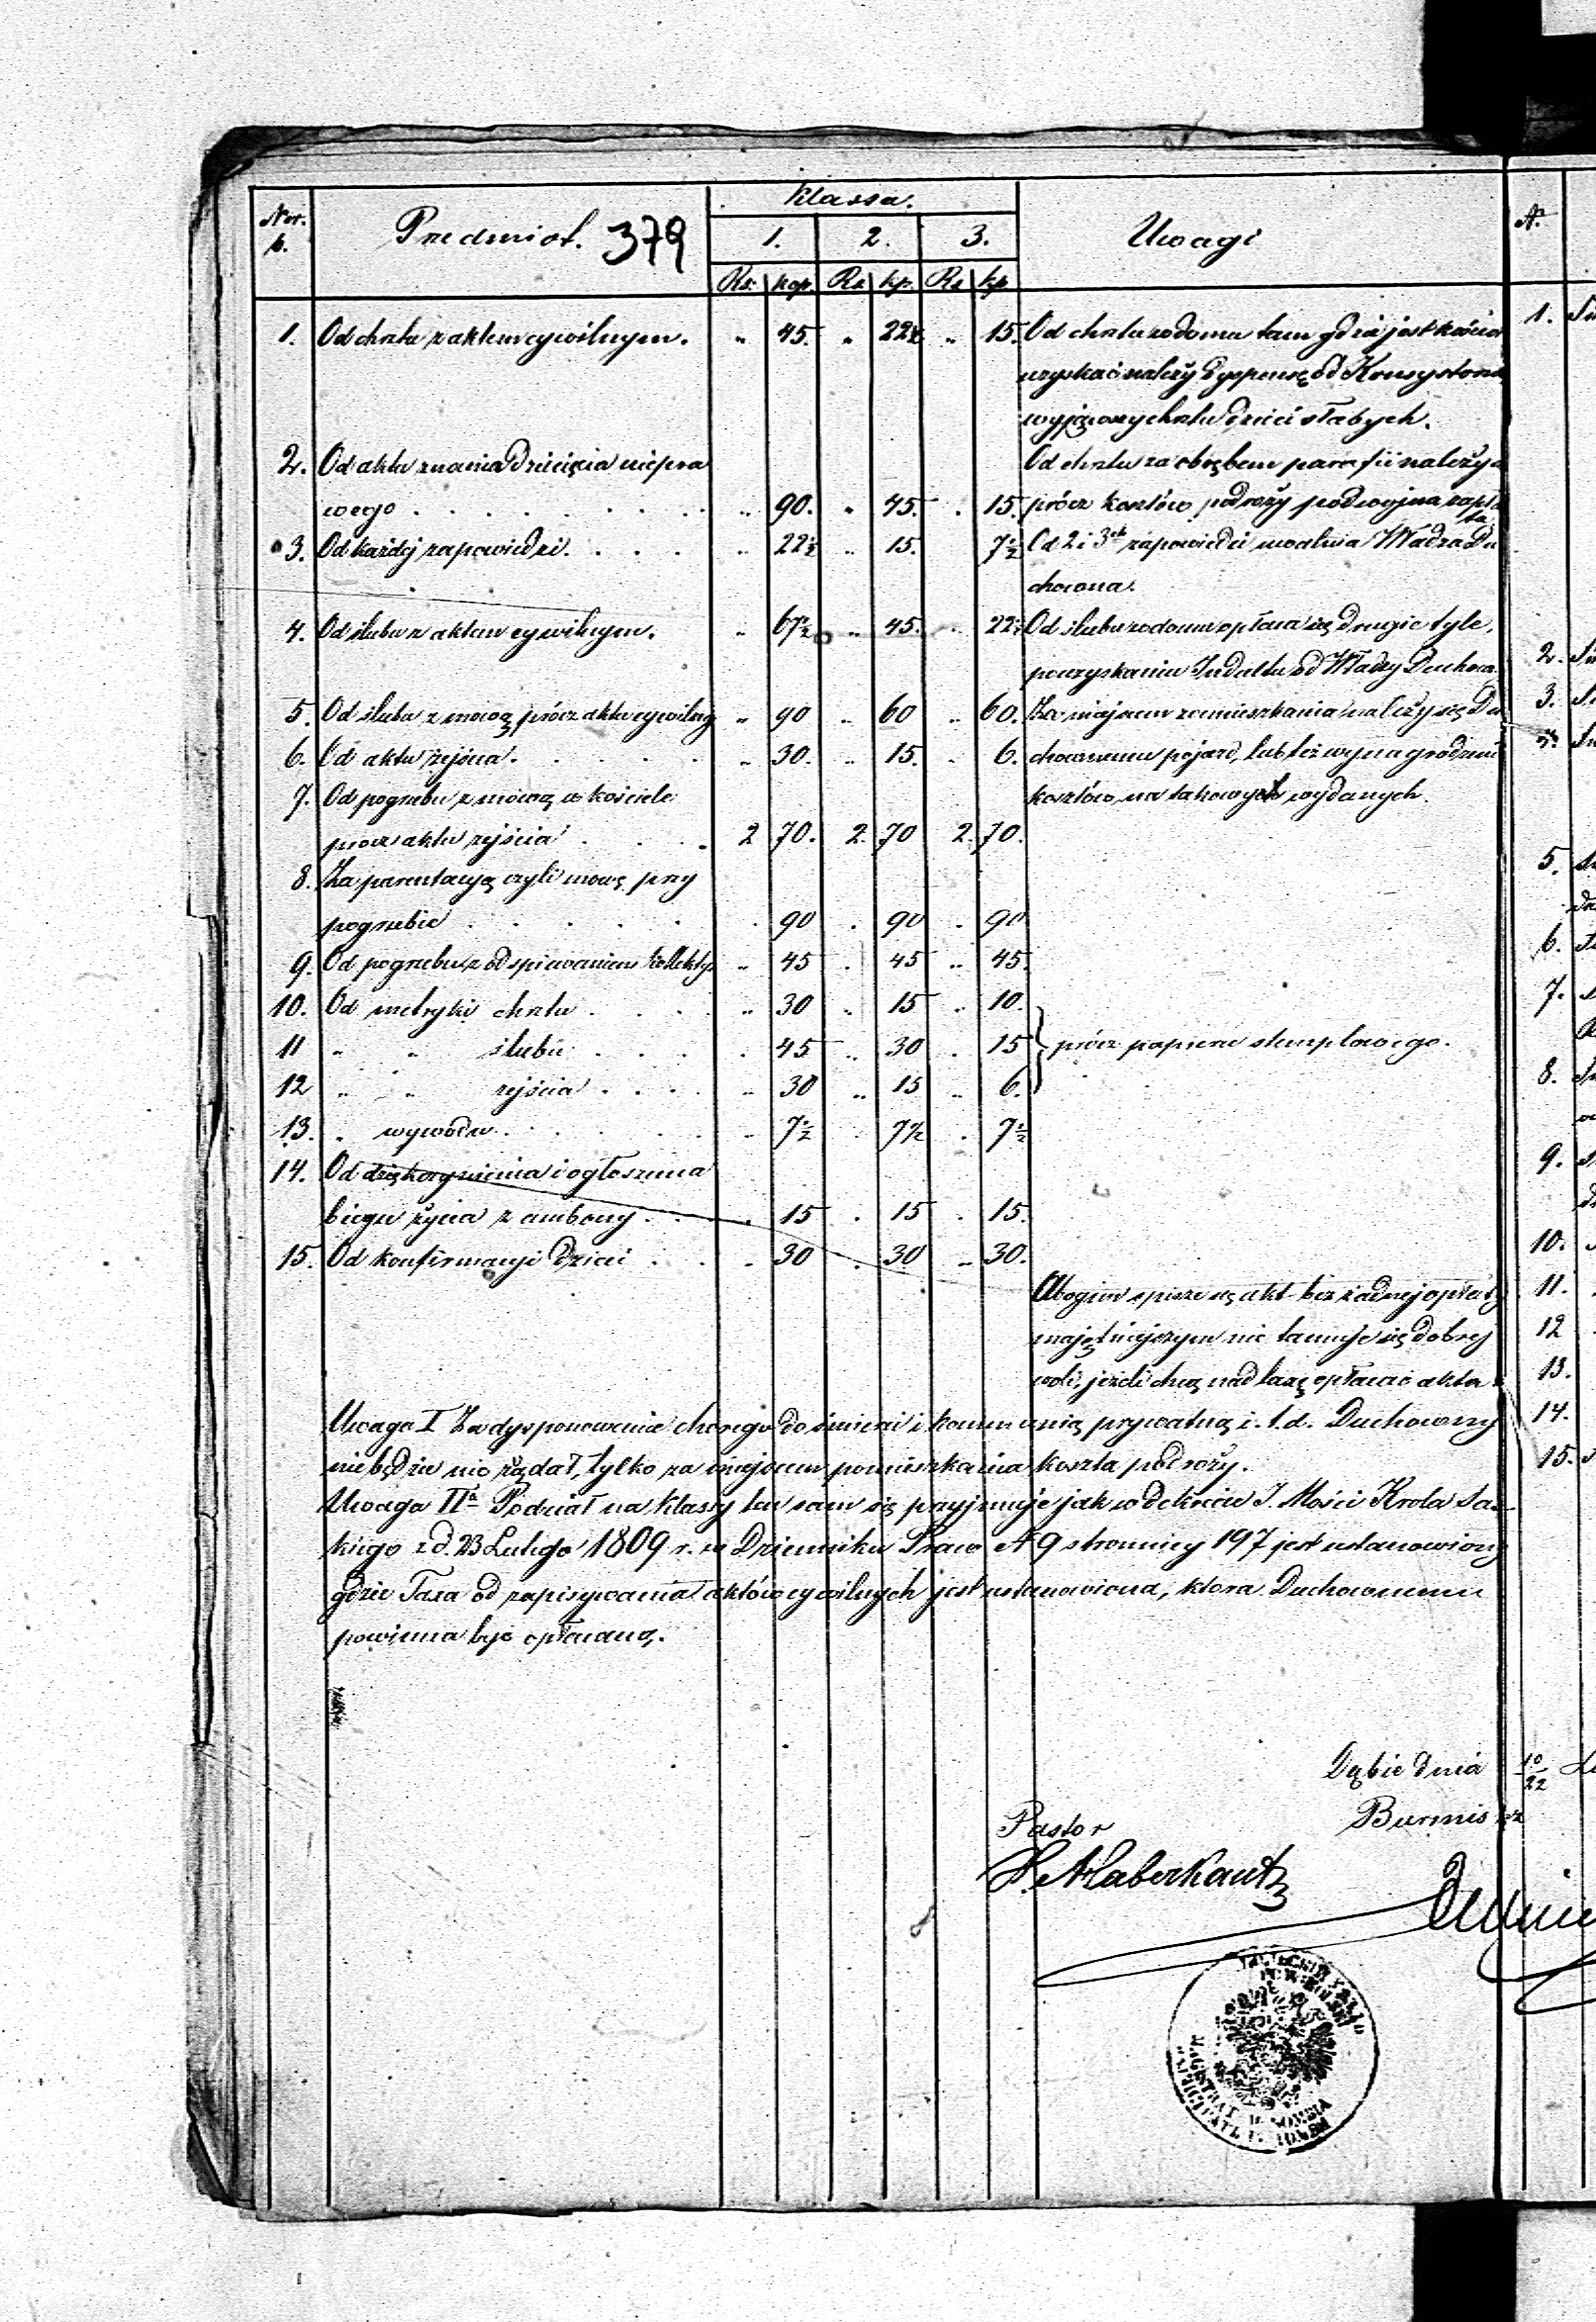 Nor. Przedmiot. 379 Klassa. Uwagi Nr.
b. 1. 2. 3.
Rs. kop. Rs. kp. Rs. kp.
1. Od chrztu z aktem cywilnym. " 45. " 22½ " 15. Od chrztu w domu tam gdzie jest kościoł 1.
uzyskać należy dyspensę od Konsystorza
wyjąwszy chrztu dzieci słabych.
2. Od aktu znania dziecięcia niepra Od chrztu za obrębem parafii należy
wego . . . . . " 90. " 45. . 15. prócz kosztów podróży podwojna zapła
ta
3. Od każdej zapowiedzi. . . . " 22½ " 15. 7½ Od 2 i 3ch zapowiedzi uwalnia Władza Du
chowna.
4. Od ślubu z aktem cywilnym. " 67½ " 45. " 22½ Od ślubu w domu opłaca się drugie tyle,
po uzyskaniu Indultu od Władzy Duchow. 2.
5. Od ślubu z mową prócz aktu cywilneg " 90 " 60 " 60. Za miejscem zamieszkania należy się Du 3.
6. Od aktu zejścia. . . . " 30. " 15. " 6. chownemu pojazd, lub też wynagrodzenie 4.
7. Od pogrzebu z mową w kościele kosztów na takowych wydanych.
procz aktu zejścia . . . 2 70. 2. 70 2. 70.
8. Za parentacyą czyli mowę przy 5.
pogrzebie . . . . . 90 . 90 . 90
9. Od pogrzebu z odspiewaniem kollekty " 45 . 45 " 45. 6.
10. Od metryki chrztu . . . " 30 " 15 " 10. 7.
11 " " ślubu . . . . 45 " 30 . 15 } prócz papieru stemplowego.
12 " " zejścia . . . " 30 " 15 " 6. 8.
13. " wywodu . . . . " 7½ . 7½ . 7½
14. Od dziękczynienia i ogłoszenia 9.
biegu życia z ambony . . . 15 . 15 . 15.
15. Od konfirmacyi dzieci . . . 30 . 30 " 30. 10.
Ubogim spisze się akt bez żadnej opłaty 11.
majętniejszym nie tamuje się dobrej 12
woli, jeżeli chcą nad taxę opłacać akta 13.
Uwaga I Za dysponowanie chorego do śmierci i kommunią prywatną i. t. d. Duchowny 14.
nie będzie nic żądał, tylko za miejscem pomieszkania koszta podroży. 15.
Uwaga IIa Podział na klassy ten sam się przyjmuje jak w dekrecie J. Mości Krola Sas-
kiego z d. 23 Lutego 1809 r. w Dzienniku Praw N 9 stronnicy 197 jest ustanowiony
gdzie Taxa od zapisywania aktów cywilnych jest ustanowiona, ktora Duchownemu
powinna być opłacaną.
Dąbie dnia 10/22
Pastor Burmistrz